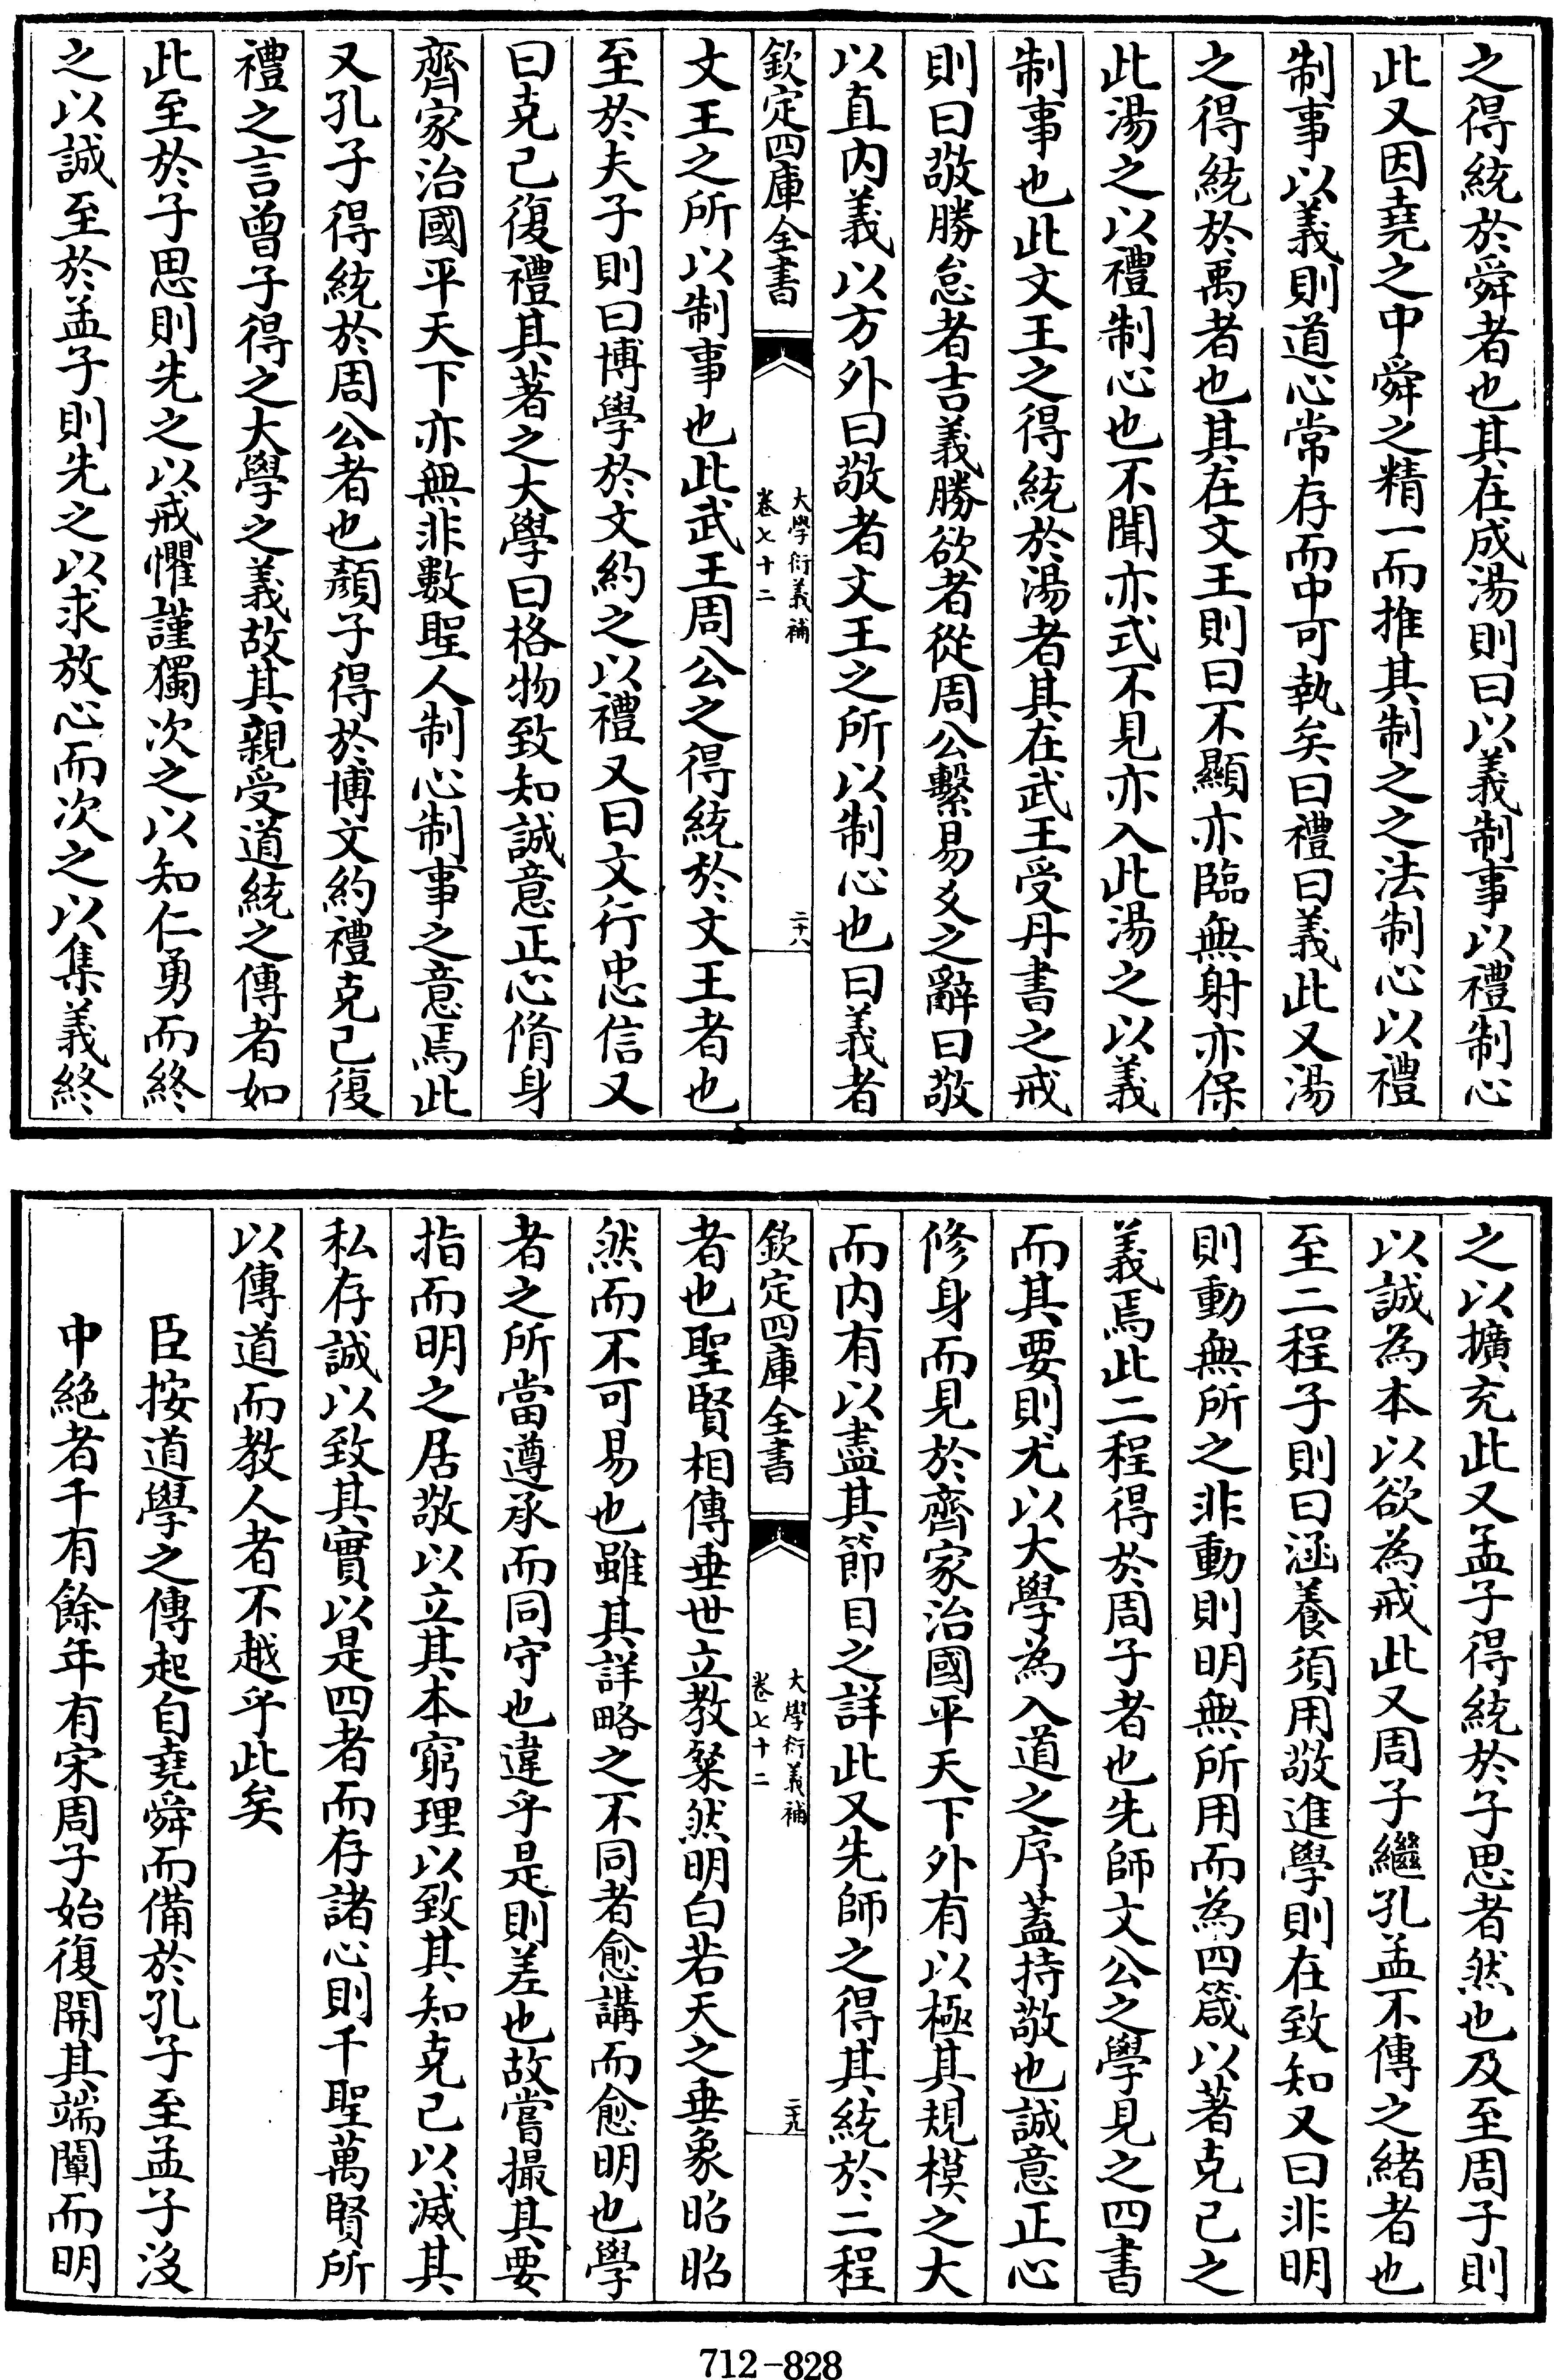 之得統於舜者也其在成湯則曰以義制事以禮制心
此又因堯之中舜之精一而推其制之之法制心以禮
制事以義則道心常存而中可執矣曰禮曰義此又湯
之得統於禹者也其在文王則曰不顯亦臨無射亦保
此湯之以禮制心也不聞亦式不見亦入此湯之以義
制事也此文王之得統於湯者其在武王受丹書之戒
則曰敬勝怠者吉義勝欲者從周公繫易爻之辭曰敬
以直內義以方外曰敬者文王之所以制心也曰義者
欽定四庫全書
大學衍義補
卷七十二
二十八
文王之所以制事也此武王周公之得統於文王者也
至於夫子則曰博學於文約之以禮又曰文行忠信又
曰克己復禮其著之大學曰格物致知誠意正心脩身
齊家治國平天下亦無非數聖人制心制事之意焉此
又孔子得統於周公者也顏子得於博文約禮克己復
禮之言曾子得之大學之義故其親受道統之傳者如
此至於子思則先之以戒懼謹獨次之以知仁勇而終
之以誠至於孟子則先之以求放心而次之以集義終
之以擴充此又孟子得統於子思者然也及至周子則
以誠為本以欲為戒此又周子繼孔孟不傳之緒者也
至二程子則曰涵養須用敬進學則在致知又曰非明
則動無所之非動則明無所用而為四箴以著克己之
義焉此二程得於周子者也先師文公之學見之四書
而其要則尤以大學為入道之序蓋持敬也誠意正心
修身而見於齊家治國平天下外有以極其規模之大
而內有以盡其節目之詳此又先師之得其統於二程
欽定四庫全書
大學衍義補
卷七十二
二十九
者也聖賢相傳垂世立教粲然明白若天之垂象昭昭
然而不可易也雖其詳略之不同者愈講而愈明也學
者之所當遵承而同守也違乎是則差也故嘗撮其要
指而明之居敬以立其本窮理以致其知克己以滅其
私存誠以致其實以是四者而存諸心則千聖萬賢所
以傳道而教人者不越乎此矣
臣按道學之傳起自堯舜而備於孔子至孟子沒
中絕者千有餘年有宋周子始復開其端闡而明
712-828